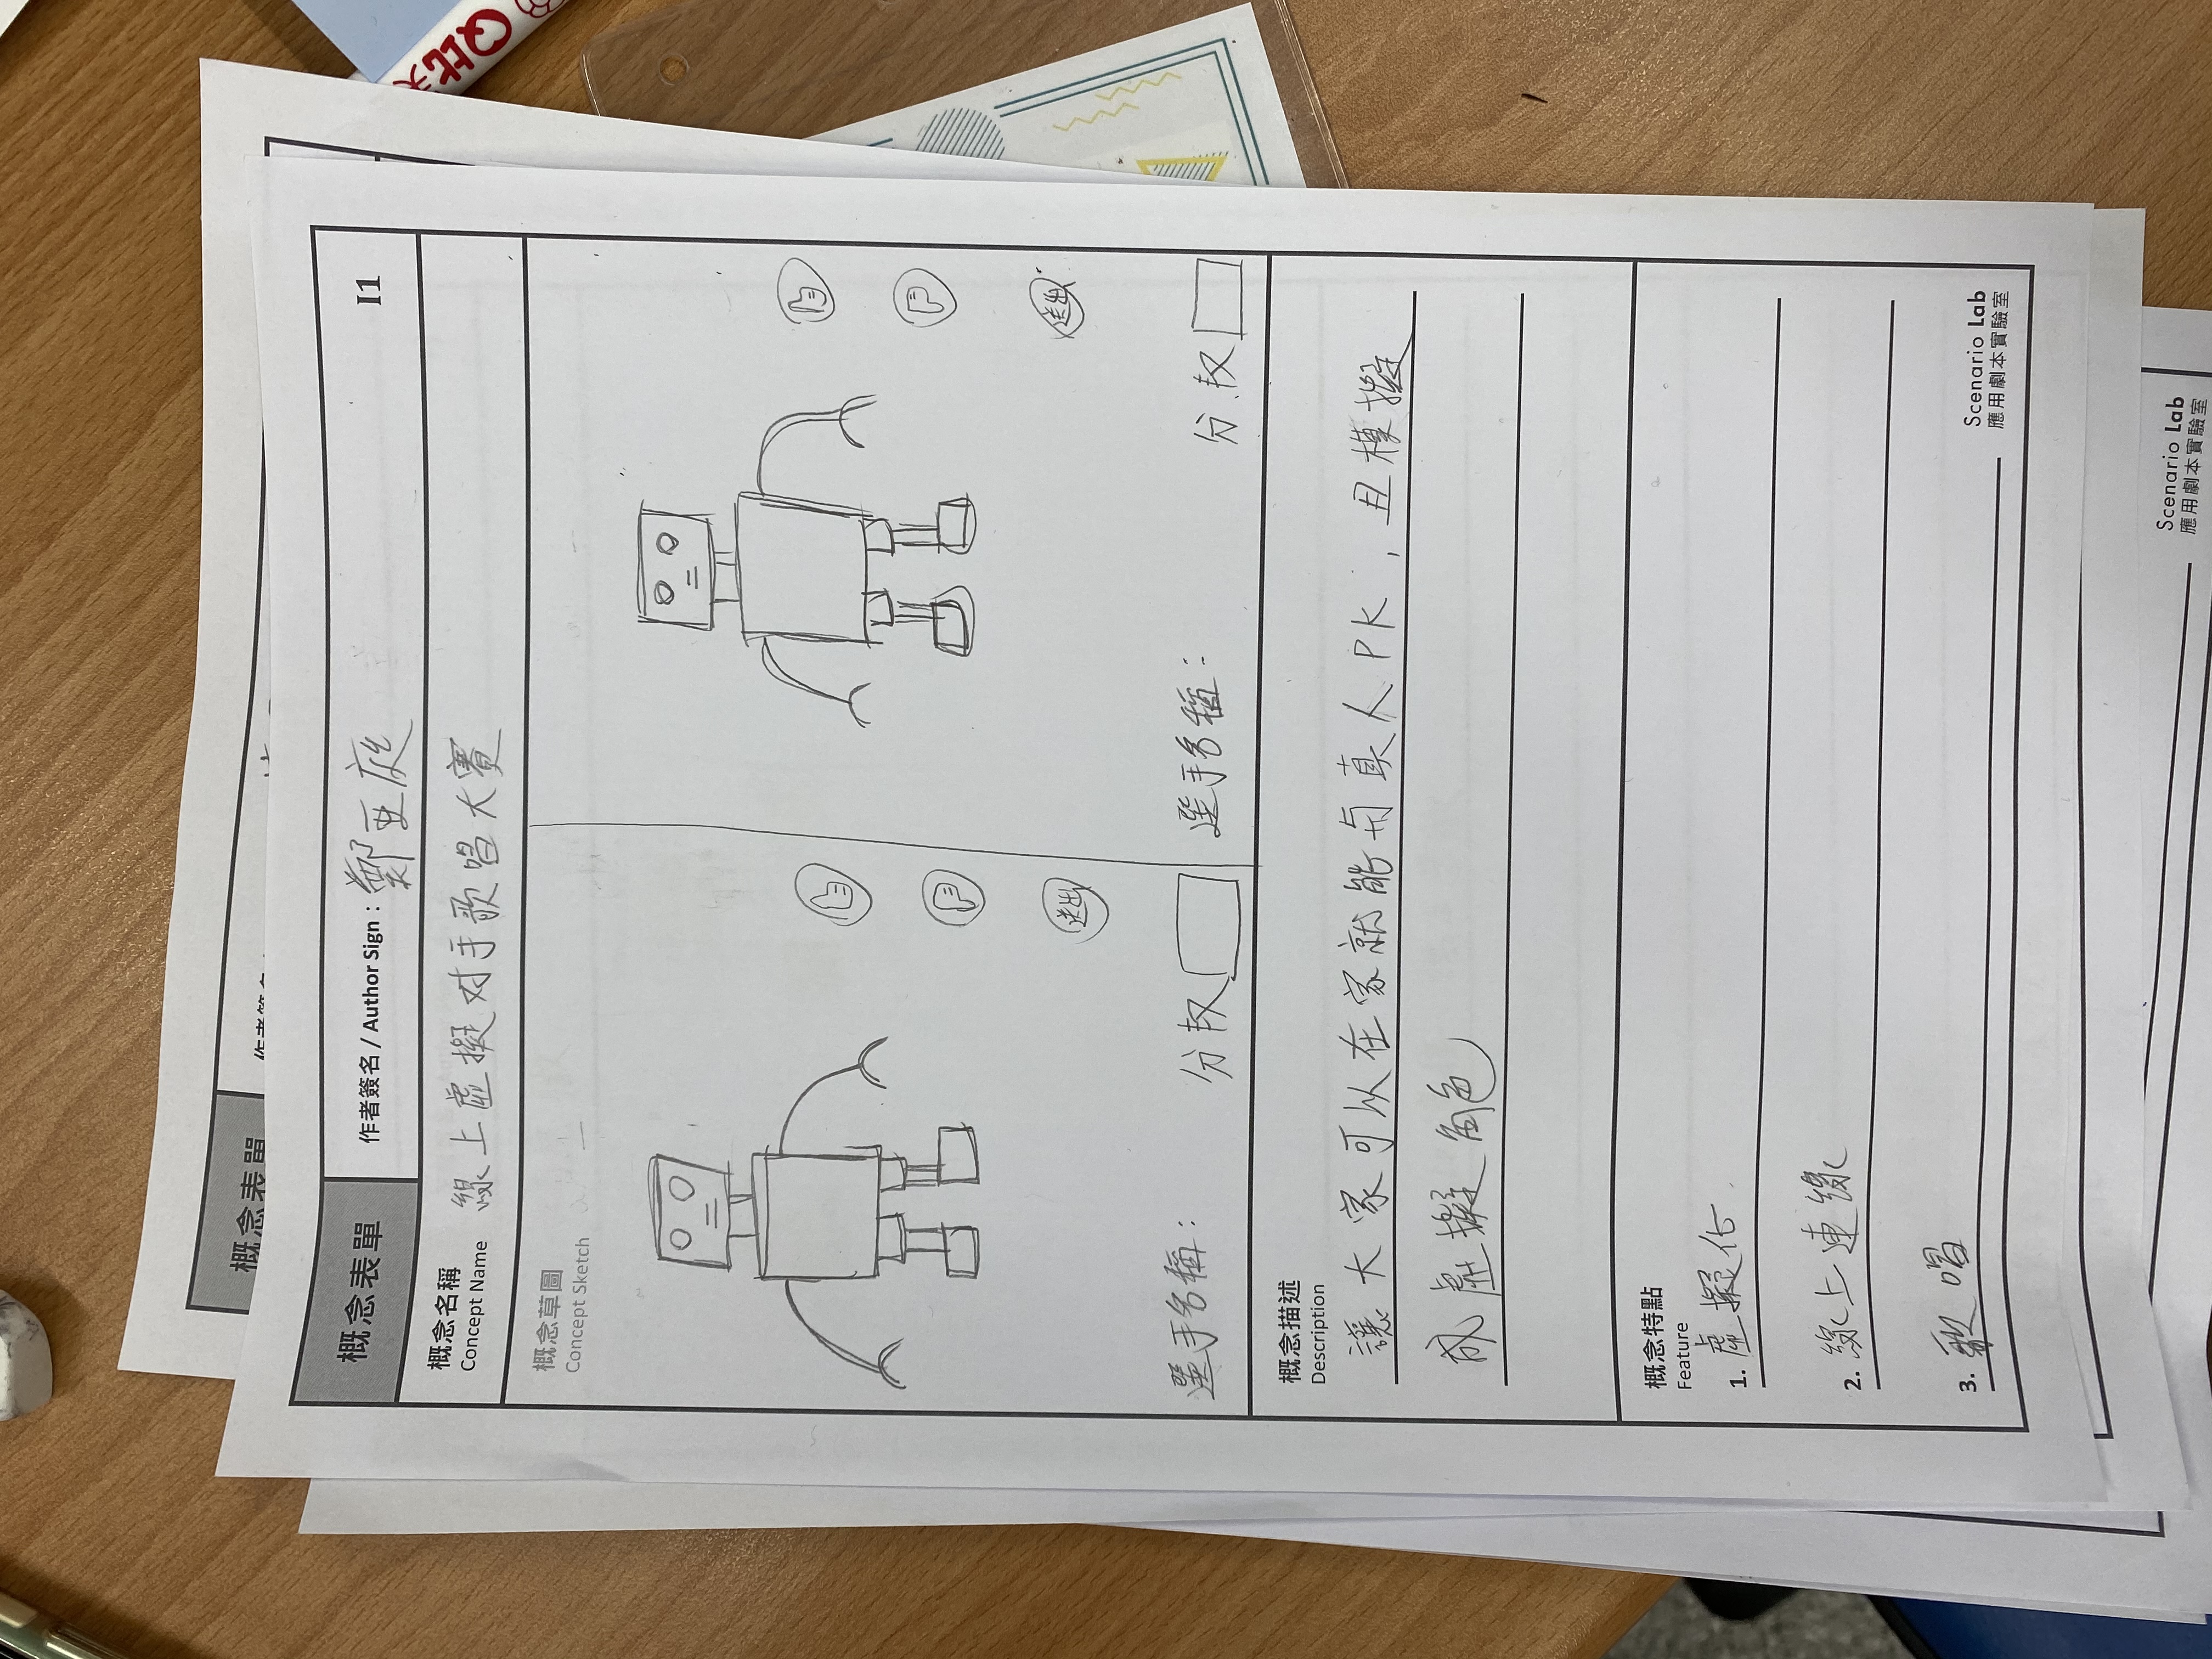 概念表單
概念表單
作者簽名 / Author Sign：鄭亚庭
I1
概念名稱
Concept Name
線上虛擬对手歌唱大賽
概念草圖
Concept Sketch
送出
送出
選手名稱：
分权
選手名稱：
分权
概念描述
Description
讓大家可以在家就能与真人PK，且模擬
成虛擬角色
概念特點
Feature
1. 虛擬化
2. 線上連線
3. 歌唱
Scenario Lab
應用劇本實驗室
Scenario Lab
應用劇本實驗室